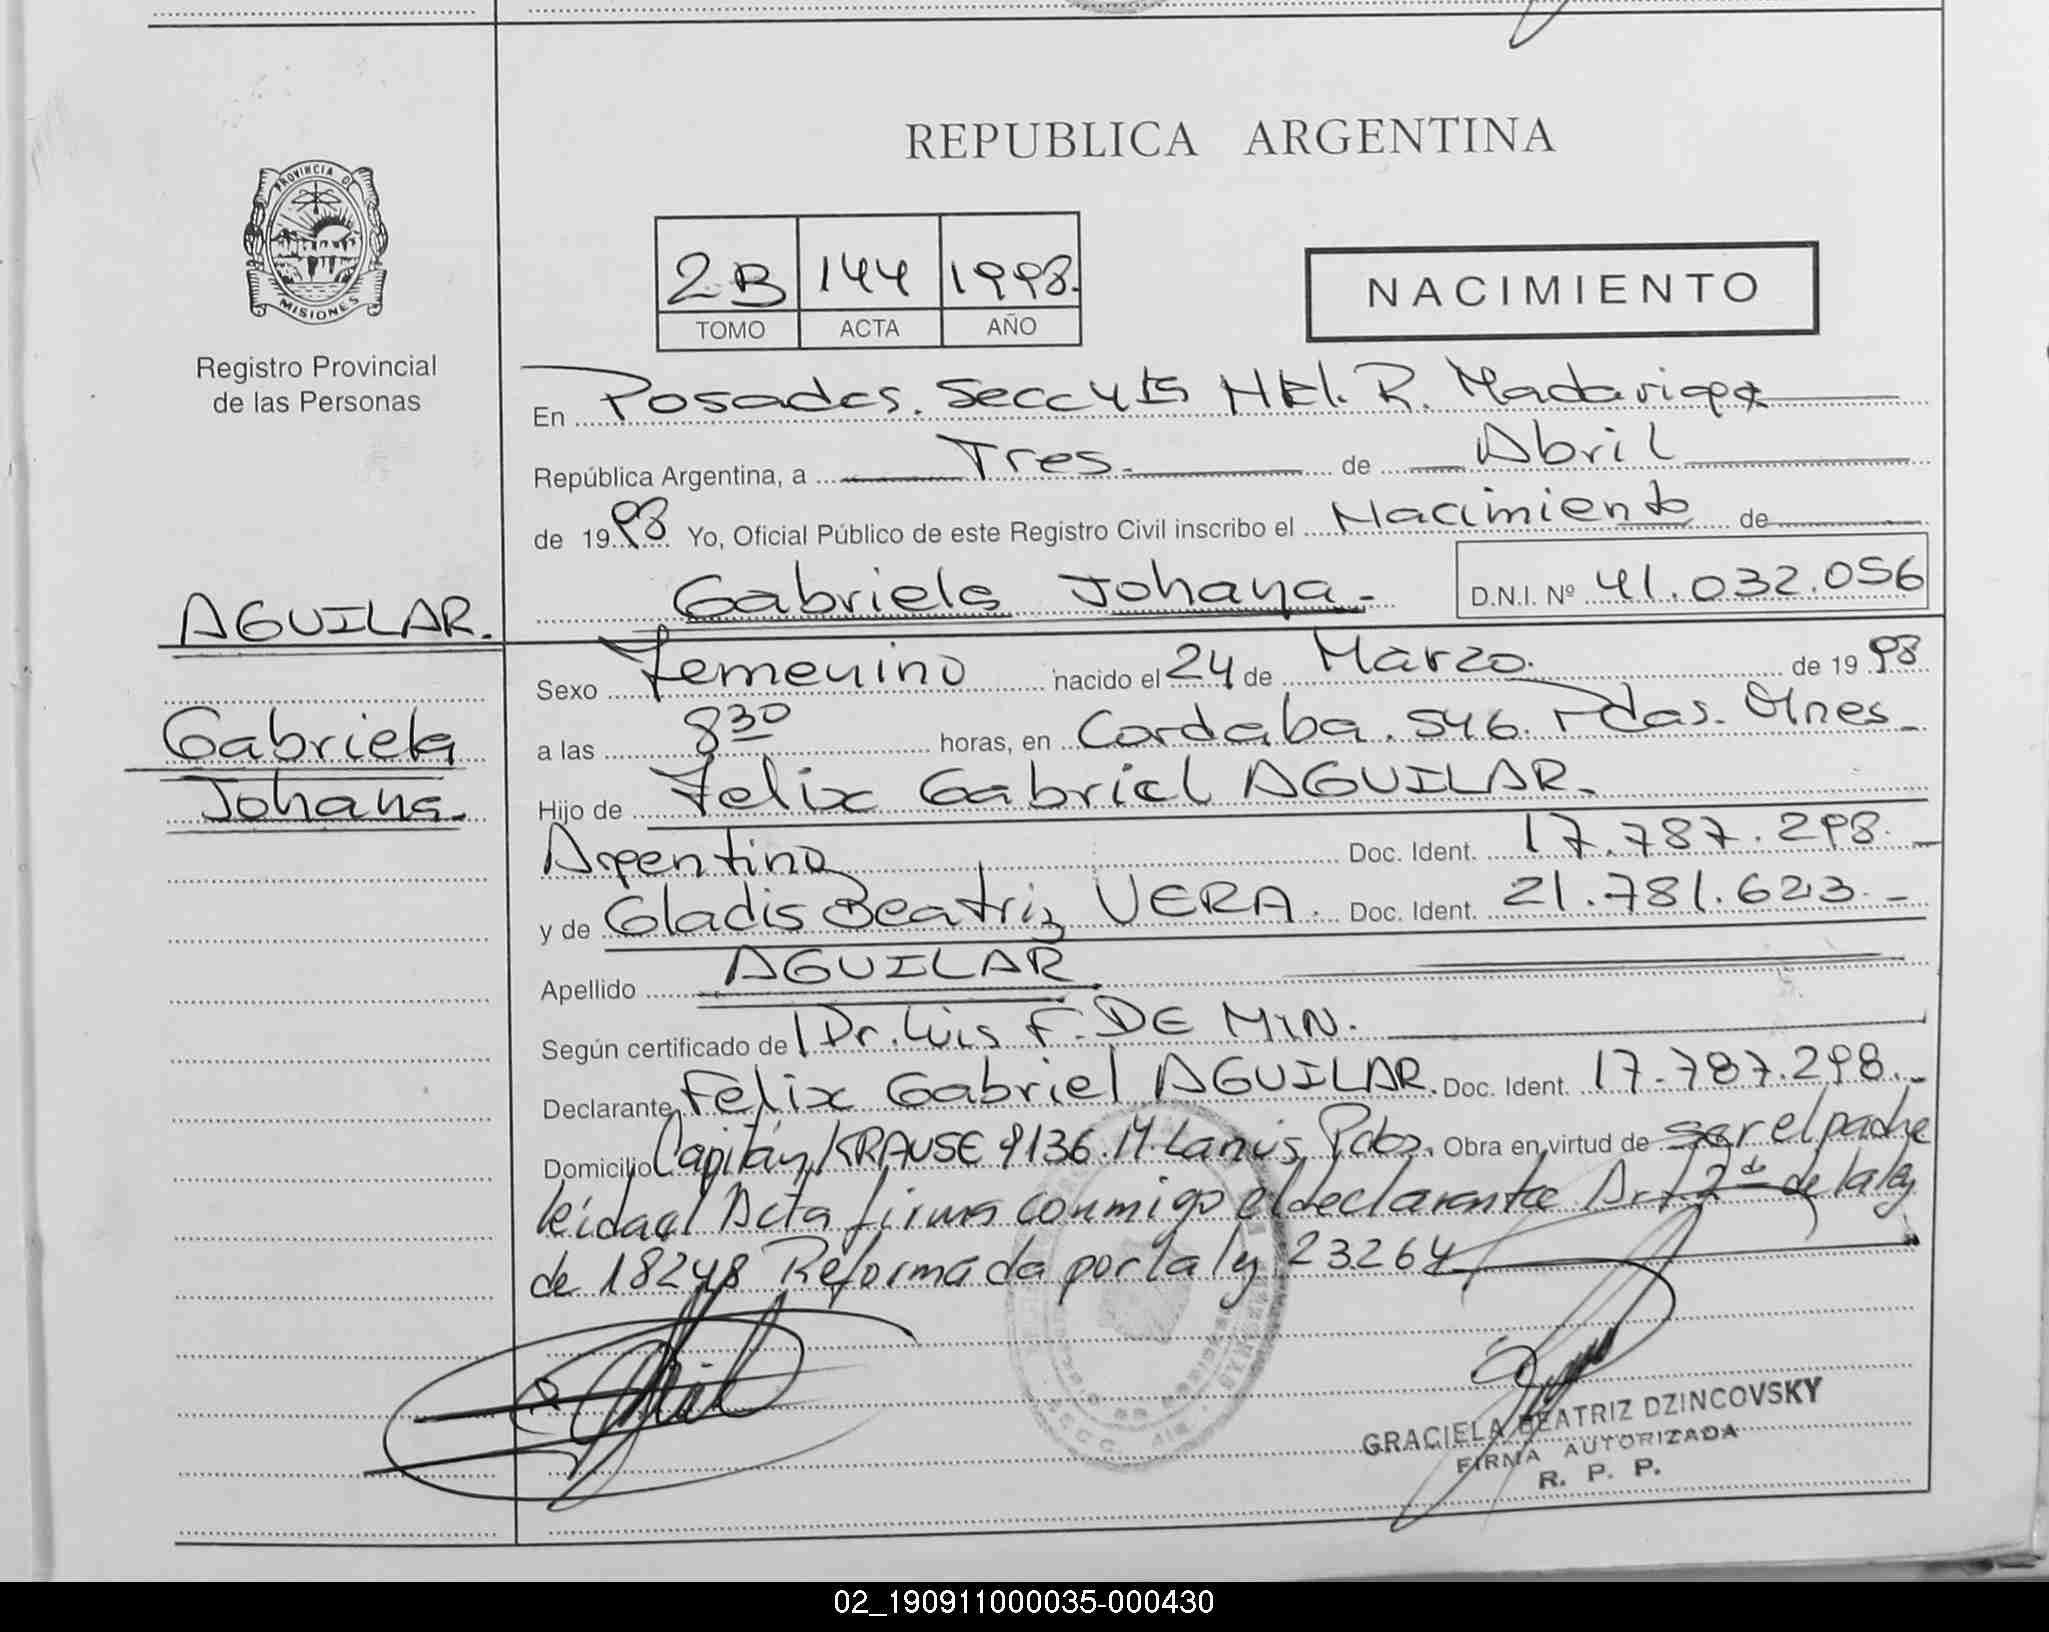 REPUBLICA ARGENTINA
PROVINCIA D
MISIONES
Registro Provincial
de las Personas
2B 144 1998.
TOMO ACTA AÑO
NACIMIENTO
En Posadas. Secc 4ta HRl. R. Madariaga
República Argentina, a Tres. de Abril
de 1998 Yo, Oficial Público de este Registro Civil inscribo el Nacimiento de
Gabriela Johana. D.N.I. Nº 41.032.056
AGUILAR.
Gabriela
Johana.
Sexo Femenino nacido el 24 de Marzo. de 1998
a las 8 30 horas, en Cordoba. 546. Pdas. Mnes
Hijo de Felix Gabriel AGUILAR.
Argentino Doc. Ident. 17.787.298.
y de Gladis Beatriz VERA. Doc. Ident. 21.781.623.
Apellido AGUILAR
Según certificado de Dr. Luis F. DE MIN.
Declarante Felix Gabriel AGUILAR. Doc. Ident. 17.787.298.
Domicilio Capitán KRAUSE 9136. M. Lanus Pdas. Obra en virtud de ser el padre
leída el Acta firma conmigo el declarante Art 2do de la ley
de 18248 Reformada por la ley 23264
GRACIELA BEATRIZ DZINCOVSKY
FIRMA AUTORIZADA
R. P. P.
02_190911000035-000430